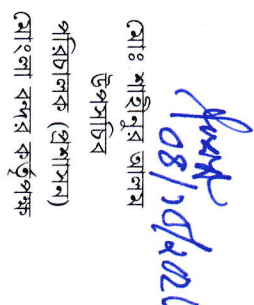 মোঃ শাহিনুর আলম
উপসচিব
পরিচালক (প্রশাসন)
মোংলা বন্দর কর্তৃপক্ষ